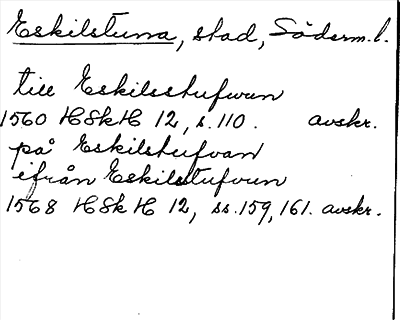 Eskilstuna, stad, Söderm.l.
till Eskilsstufwun
1560 HSkH 12, s.110. avskr.
på Eskilstufvan
ifrån Eskilstufvun
1568 HSkH 12, ss.159, 161. avskr.